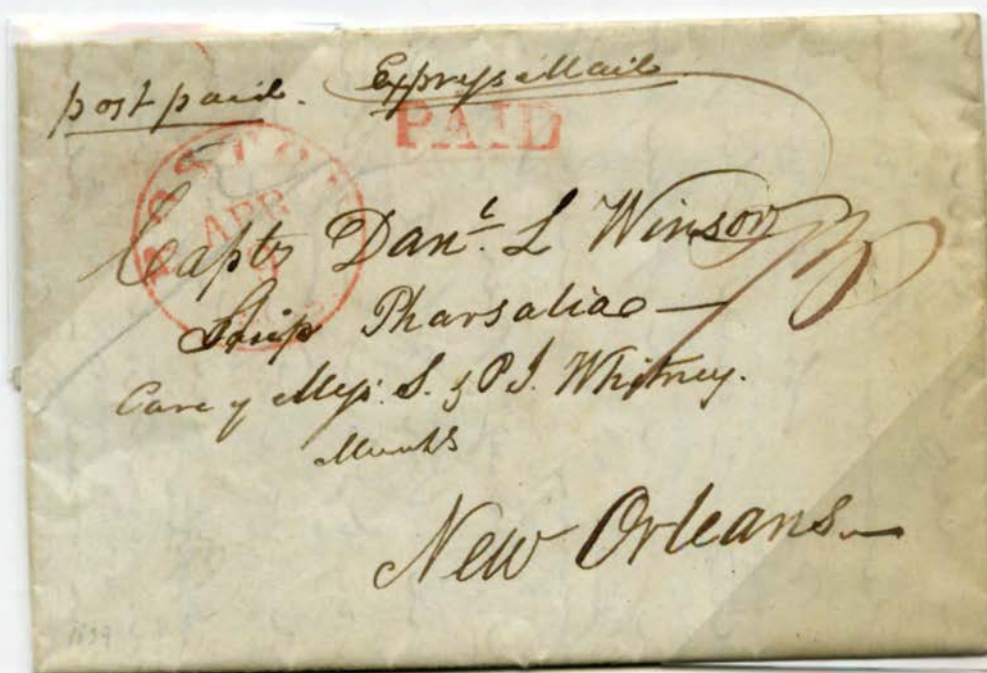 post paid. Express Mail
PAID
BOSTON
APR
Capt Danl. L Winsor
Ship Pharsalia —
Care of Mess. S. & P. J. Whitney.
Merchts
New Orleans —
1839